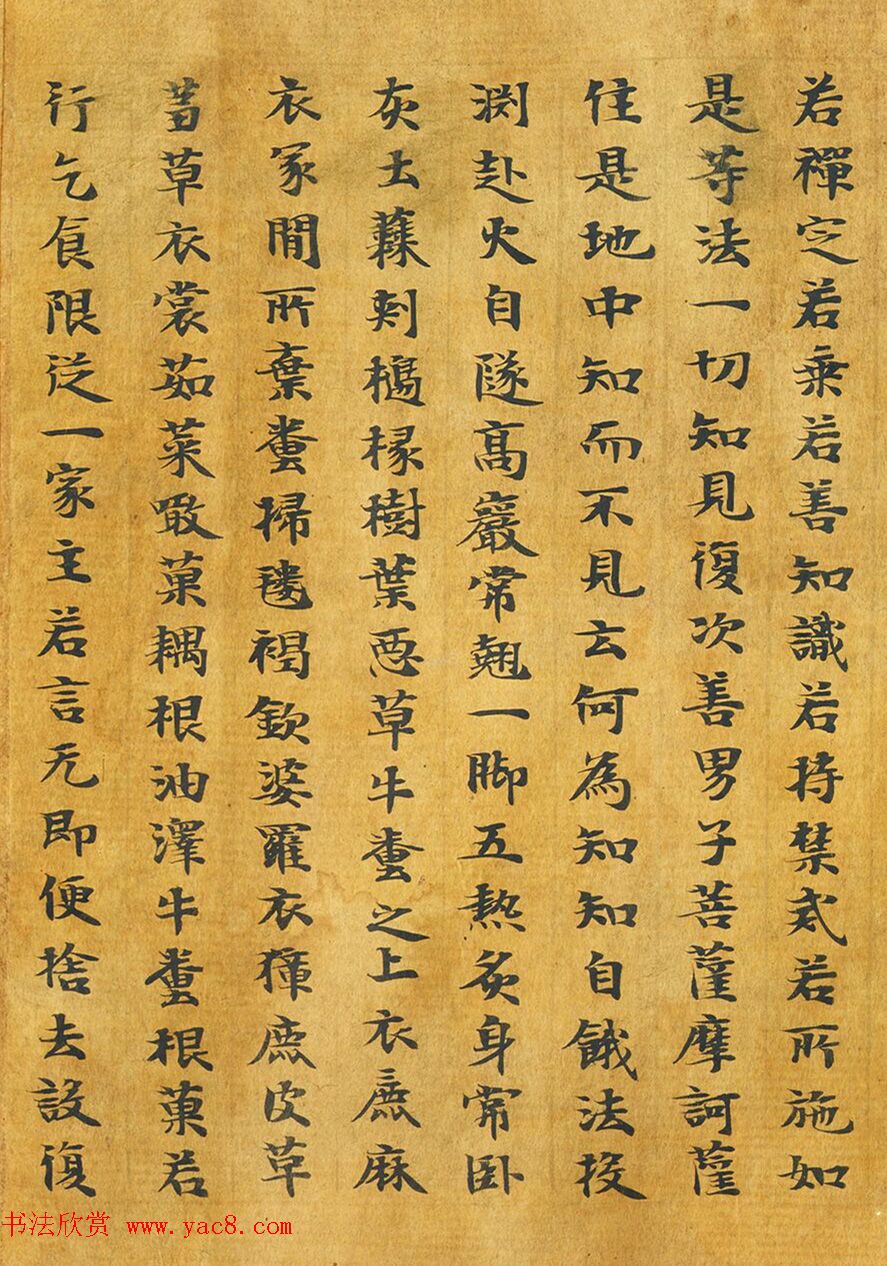 若禪定若乘若善知識若持禁戒若所施如
是等法一切知見復次善男子菩薩摩訶薩
住是地中知而不見云何為知知自餓法投
渕赴火自隧高巖常翹一脚五熱炙身常卧
灰土蕀刺橋椽樹葉惡草牛糞之上衣麁麻
衣冢間所棄糞掃毯褐欽婆羅衣獐鹿皮草
蒭草衣裳茹菜噉菓耦根油滓牛糞根菓若
行乞食限從一家主若言无即便捨去設復
书法欣赏 www.yac8.com